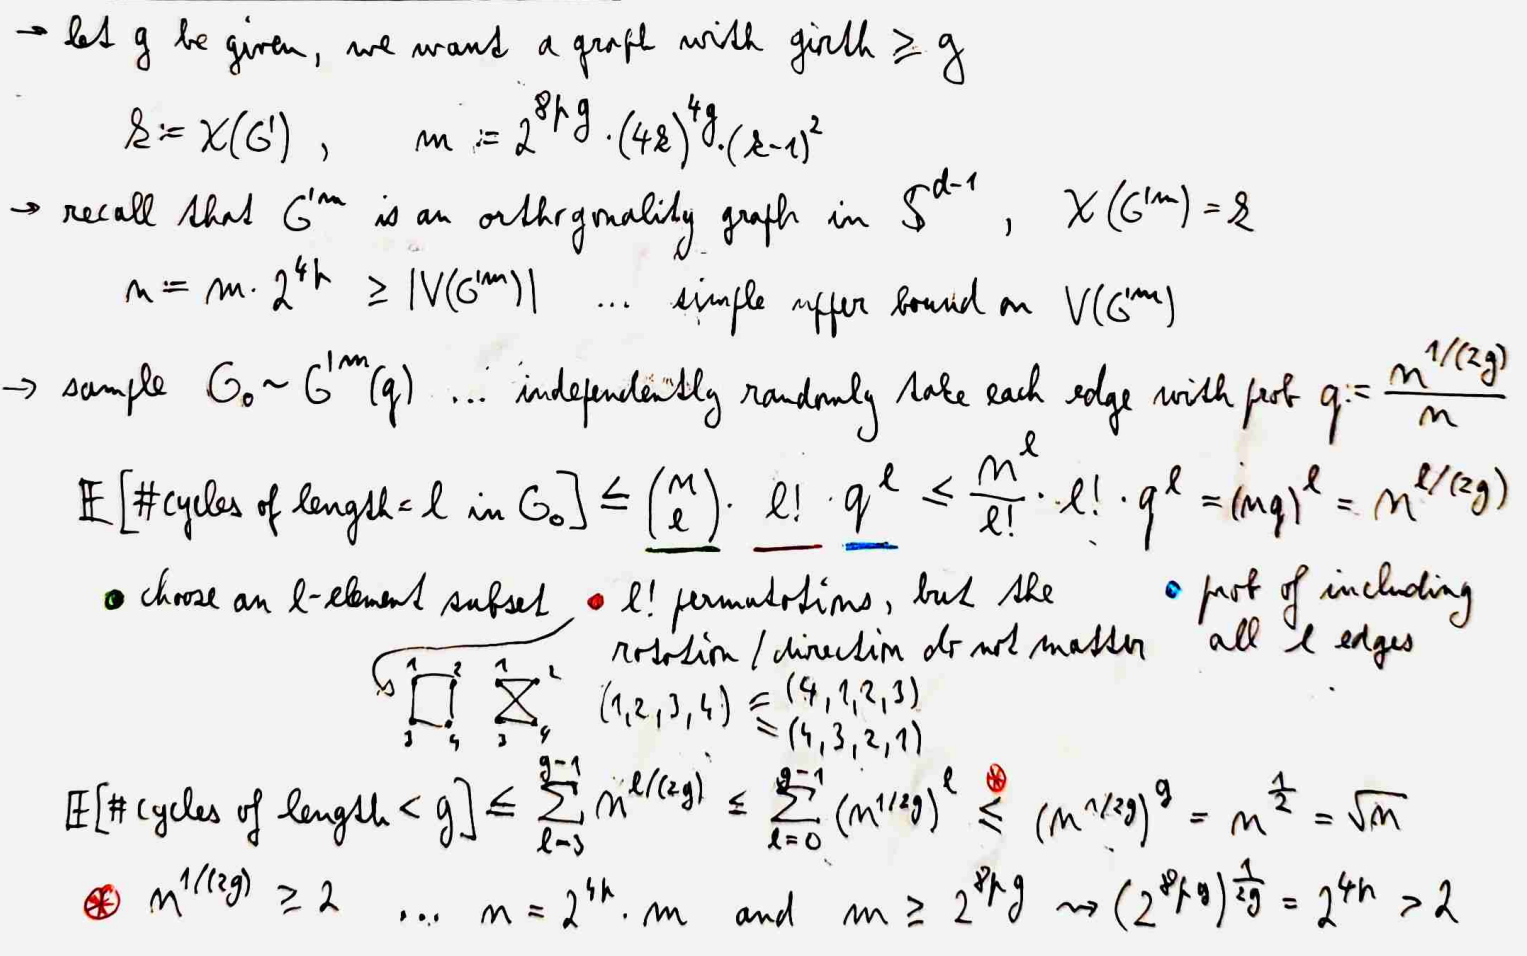 → let g be given, we want a graph with girth ≥ g
k := χ(G'), m := 2^{8pg} · (4k)^{4g} · (k-1)^2
→ recall that G'^m is an orthogonality graph in S^{d-1}, χ(G'^m) = k
n := m · 2^{4p} ≥ |V(G'^m)| ... simple upper bound on V(G'^m)
→ sample G₀ ~ G'^m(q) ... independently randomly take each edge with prob q := n^{1/(2g)} / n
𝔼[#cycles of length = l in G₀] ≤ (n l) · l! · q^l ≤ n^l / l! · l! · q^l = (nq)^l = n^{l/(2g)}
• choose an l-element subset • l! permutations, but the • prob of including
rotation / direction do not matter all l edges
1 2 1 2 (1,2,3,4) = (4,1,2,3)
3 4 3 4 = (4,3,2,1)
𝔼[#cycles of length < g] ≤ ∑_{l=3}^{g-1} n^{l/(2g)} ≤ ∑_{l=0}^{g-1} (n^{1/2g})^l ≤^⊛ (n^{1/2g})^g = n^{1/2} = √n
⊛ n^{1/(2g)} ≥ 2 ... n = 2^{4p} · m and m ≥ 2^{8pg} ⇝ (2^{8pg})^{1/2g} = 2^{4p} > 2